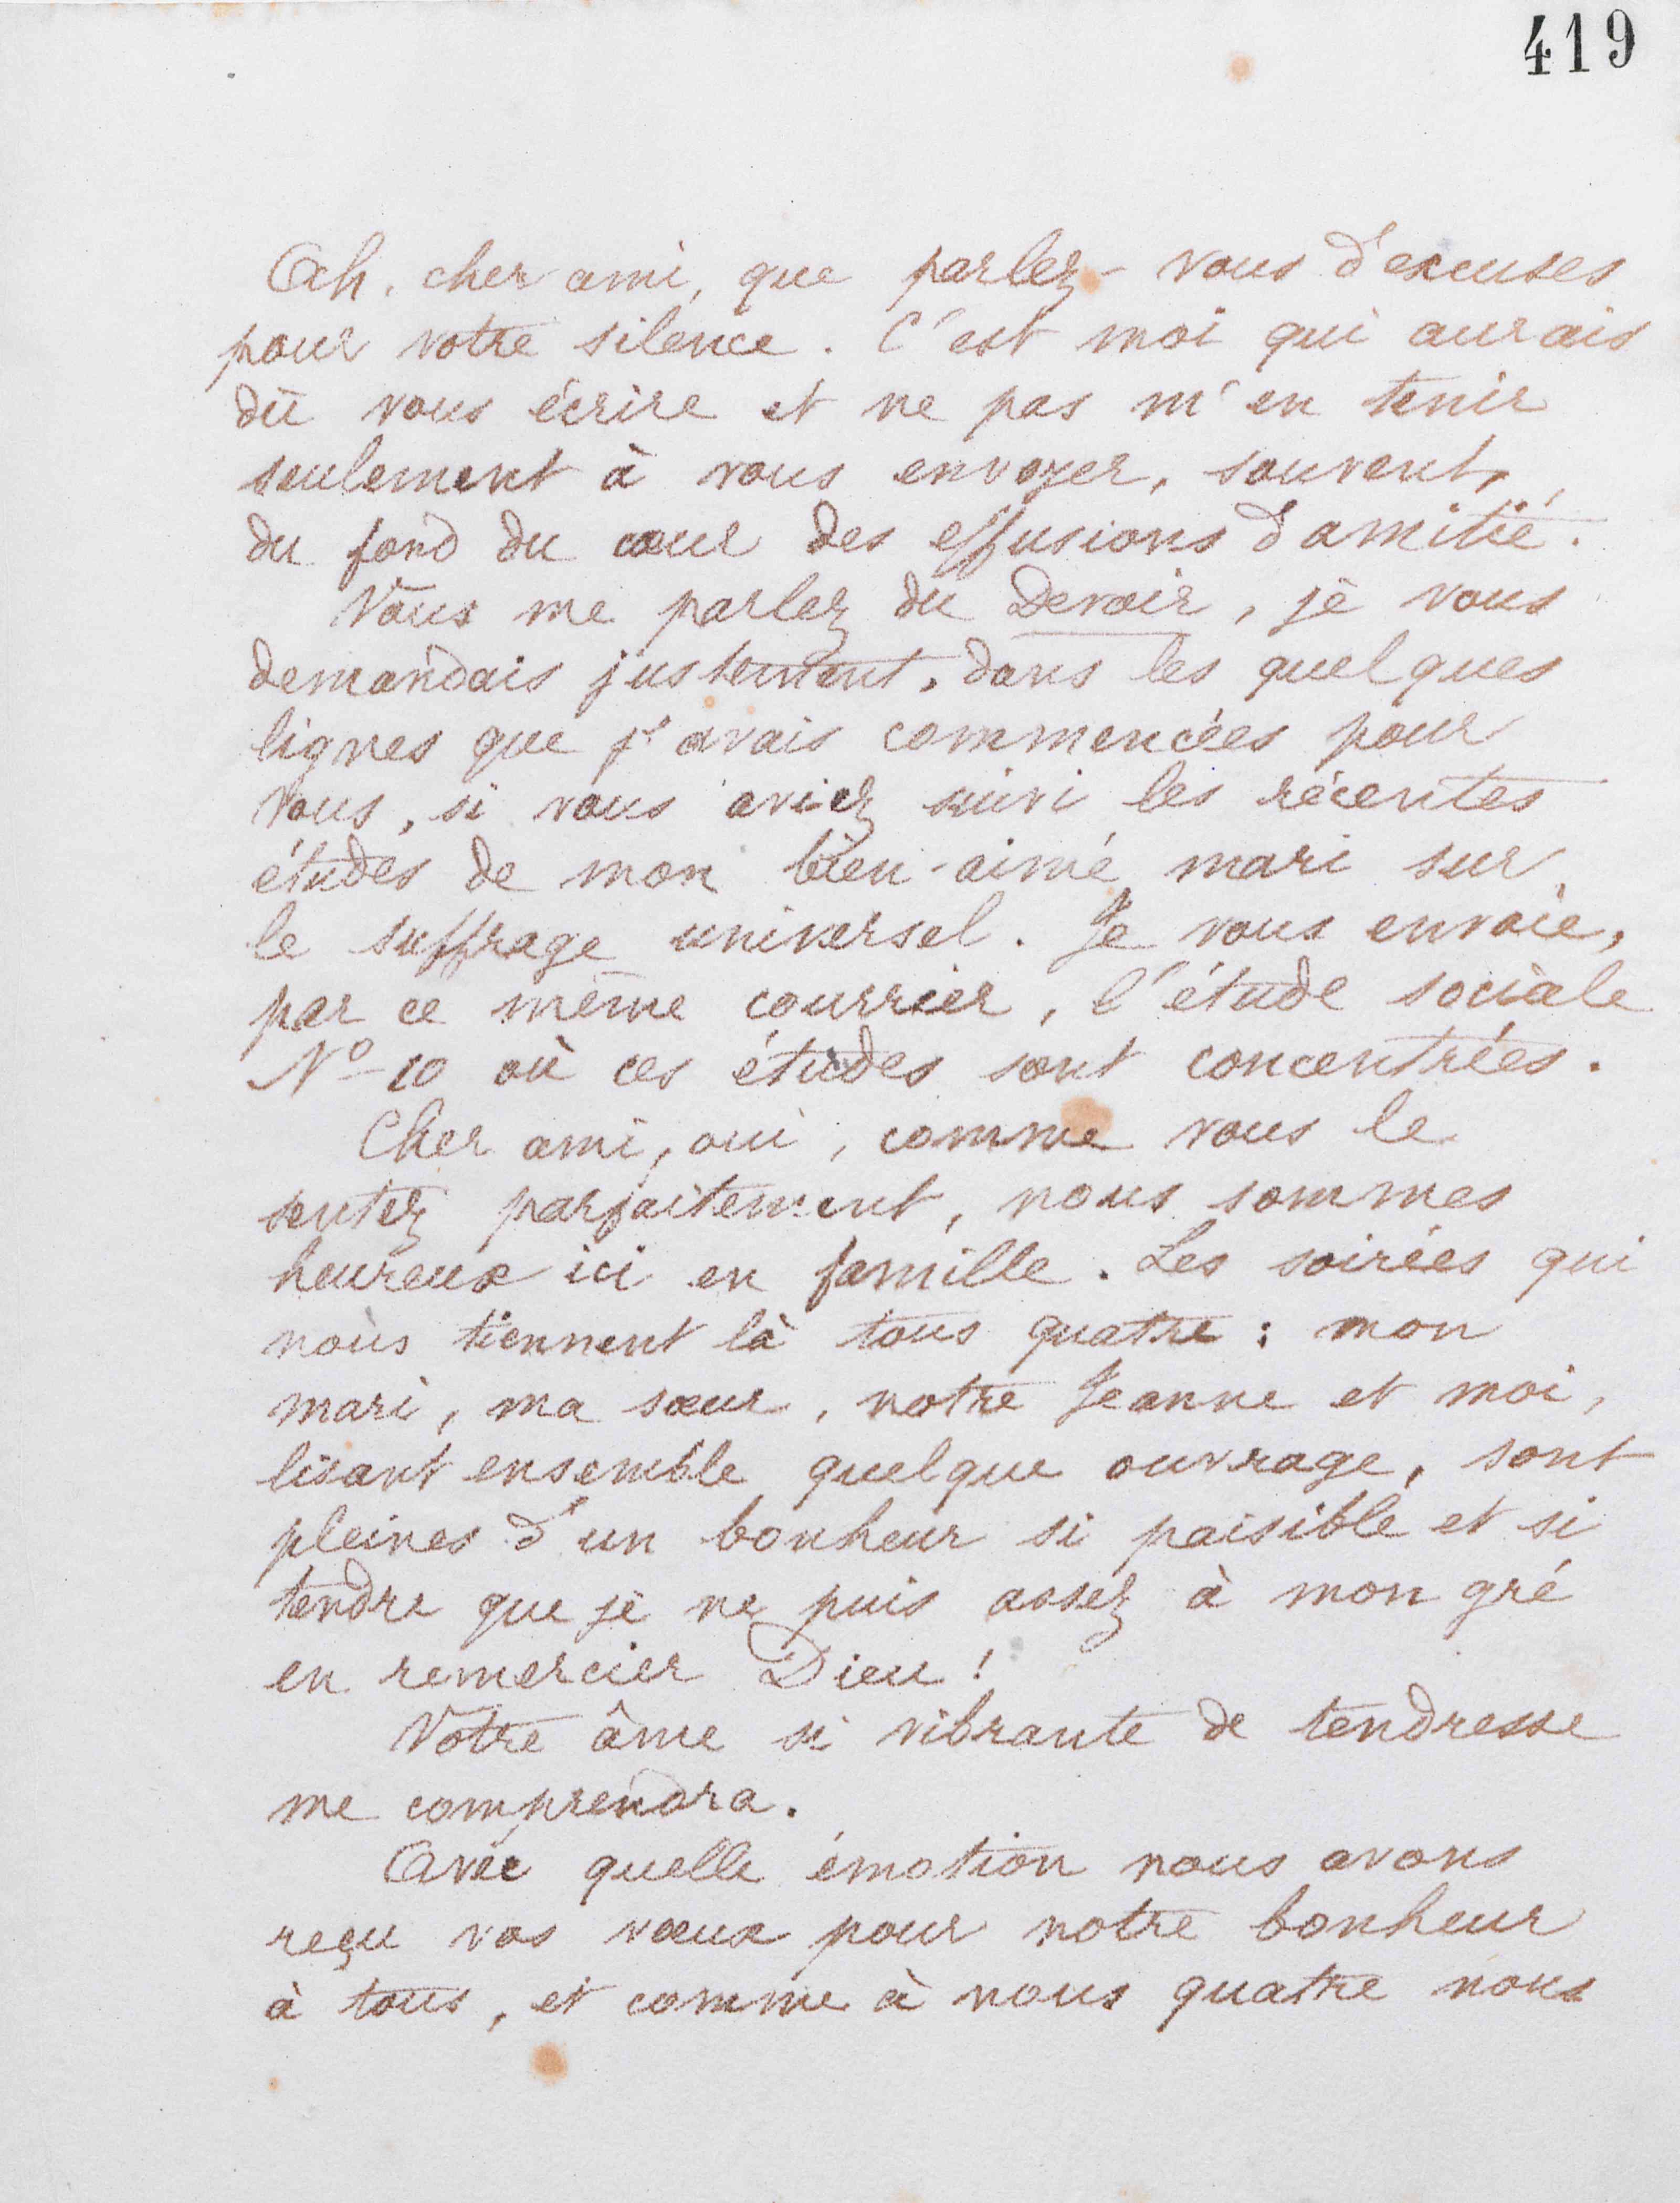 419
Ah, cher ami, que parlez-vous d'excuses
pour votre silence. C'est moi qui aurais
dû vous écrire et ne pas m'en tenir
seulement à vous envoyer, souvent,
du fond du cœur des effusions d'amitié.
Vous me parlez du Devoir, je vous
demandais justement, dans les quelques
lignes que j'avais commencées pour
vous, si vous aviez suivi les récentes
études de mon bien-aimé mari sur
le suffrage universel. Je vous envoie,
par ce même courrier, l'étude sociale
Nº 10 où ces études sont concentrées.
Cher ami, oui, comme vous le
sentez parfaitement, nous sommes
heureux ici en famille. Les soirées qui
nous tiennent là tous quatre : mon
mari, ma sœur, notre Jeanne et moi,
lisant ensemble quelque ouvrage, sont
pleines d'un bonheur si paisible et si
tendre que je ne puis assez à mon gré
en remercier Dieu !
Votre âme si vibrante de tendresse
me comprendra.
Avec quelle émotion nous avons
reçu vos vœux pour notre bonheur
à tous, et comme à nous quatre nous